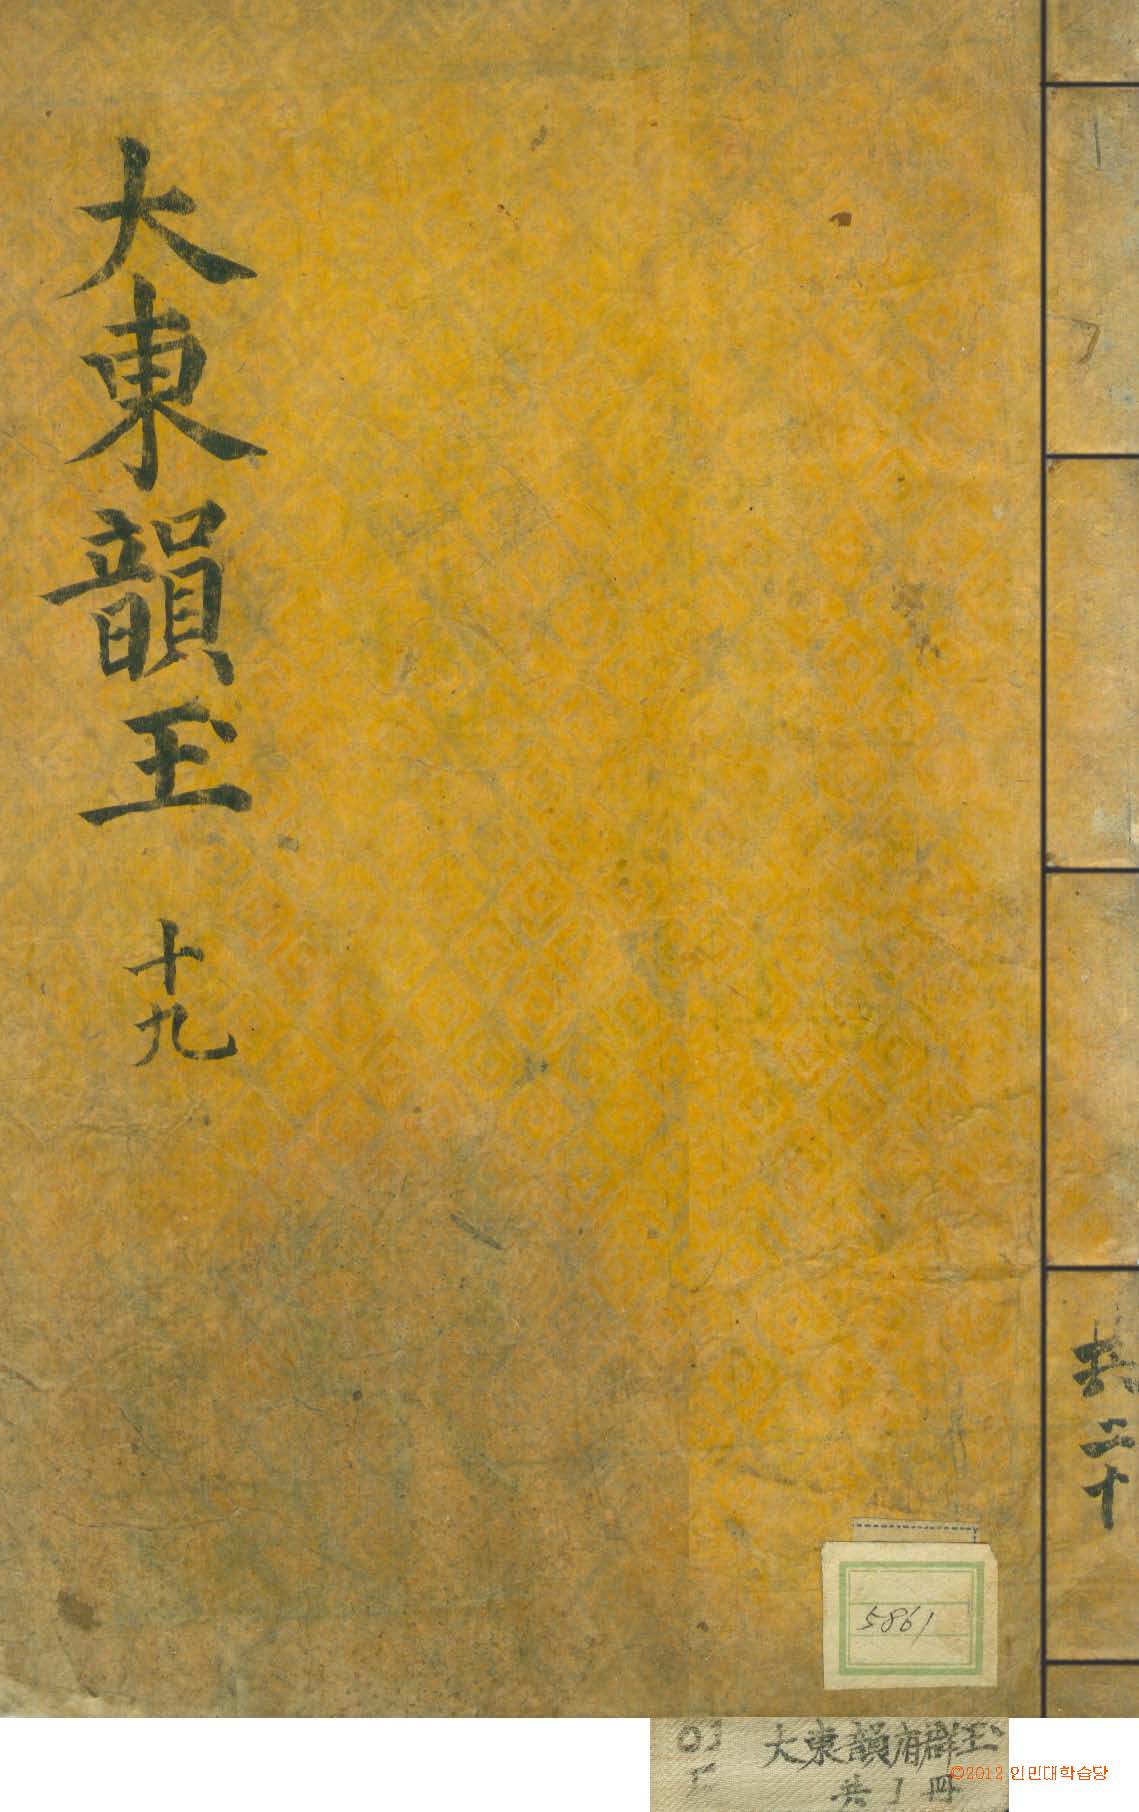 大東韻玉
十九
共二十
5861
大東韻府群玉
共1冊
©2012 인민대학습당